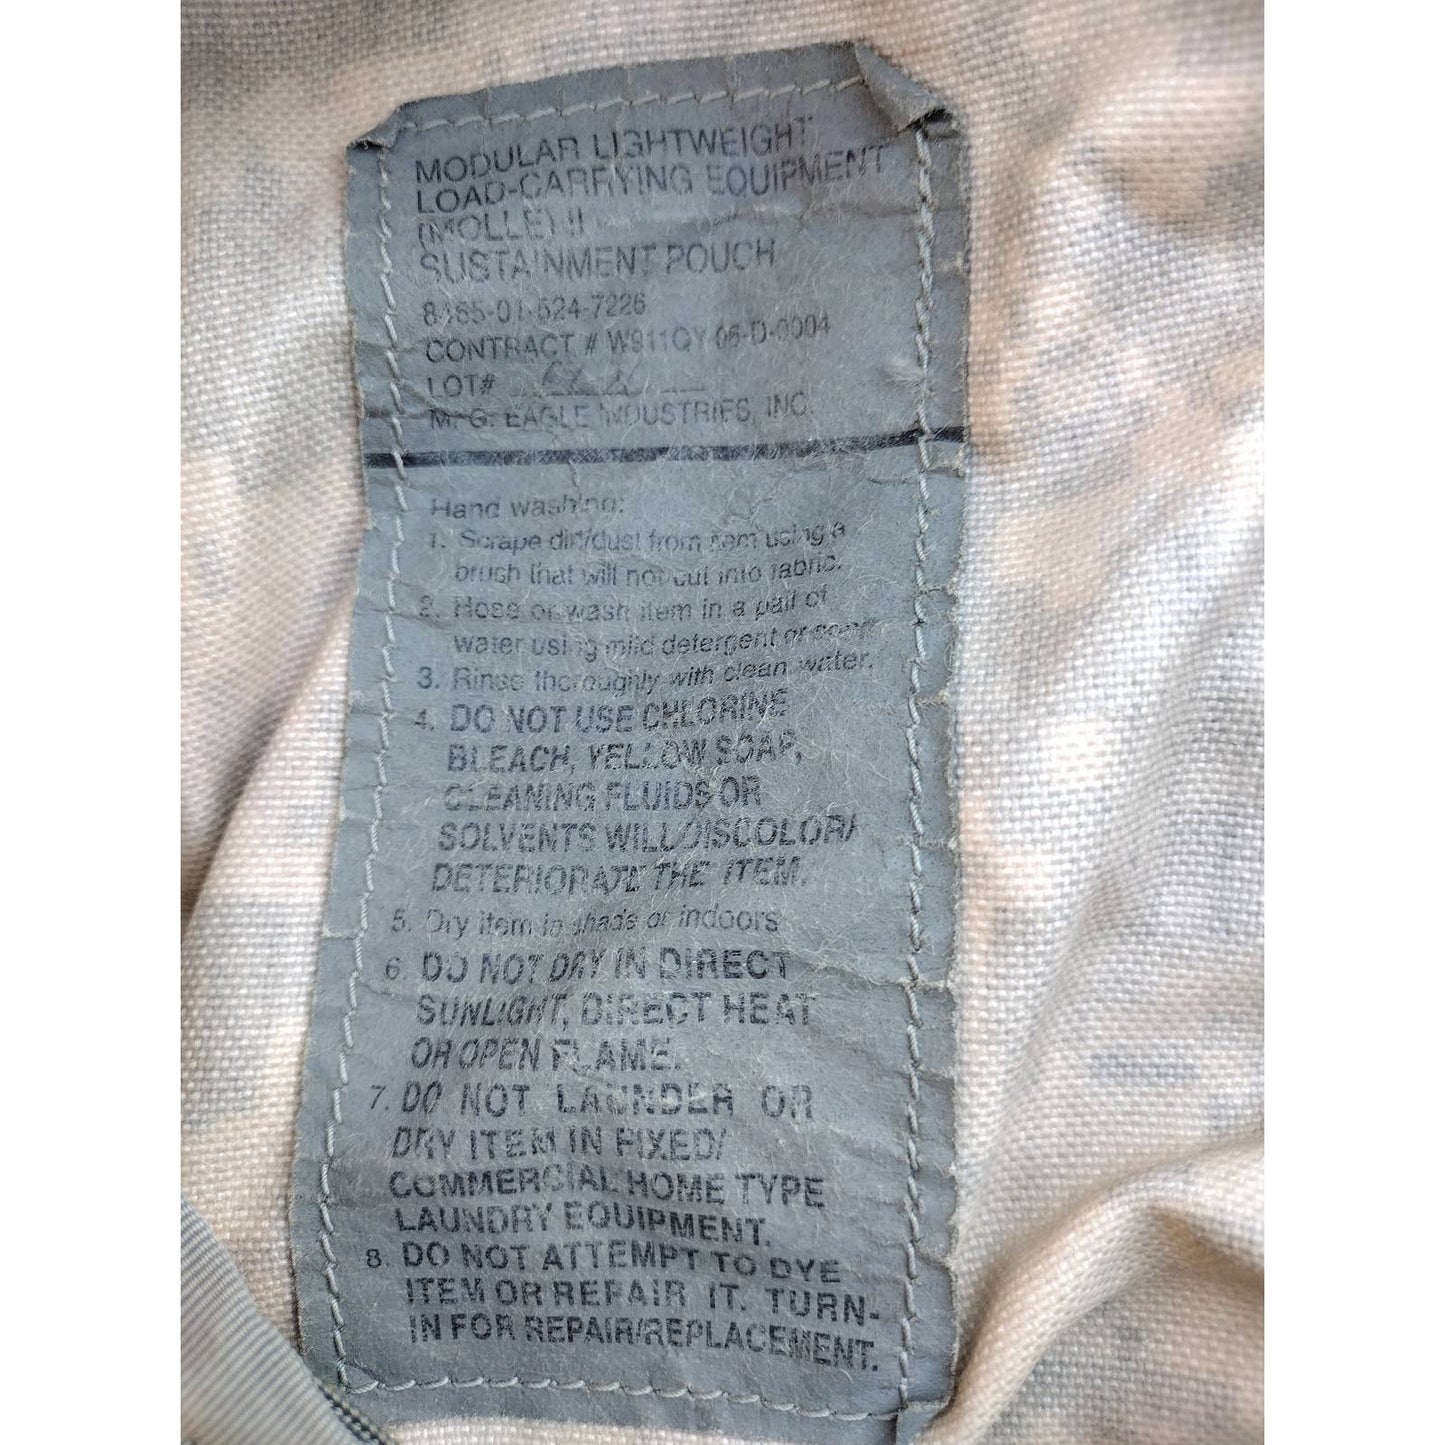 MODULAR LIGHTWEIGHT
LOAD-CARRYING EQUIPMENT
(MOLLE) II
SUSTAINMENT POUCH
8465-01-524-7226
CONTRACT # W911QY 06-D-0004
LOT#
MFG: EAGLE INDUSTRIES, INC.
Hand washing:
1. Scrape dirt/dust from item using a
brush that will not cut into fabric.
2. Hose or wash item in a pail of
water using mild detergent or soap.
3. Rinse thoroughly with clean water.
4. DO NOT USE CHLORINE
BLEACH, YELLOW SOAP,
CLEANING FLUIDS OR
SOLVENTS WILL/DISCOLOR/
DETERIORATE THE ITEM.
5. Dry item in shade or indoors
6. DO NOT DRY IN DIRECT
SUNLIGHT, DIRECT HEAT
OR OPEN FLAME.
7. DO NOT LAUNDER OR
DRY ITEM IN FIXED/
COMMERCIAL HOME TYPE
LAUNDRY EQUIPMENT.
8. DO NOT ATTEMPT TO DYE
ITEM OR REPAIR IT. TURN-
IN FOR REPAIR/REPLACEMENT.